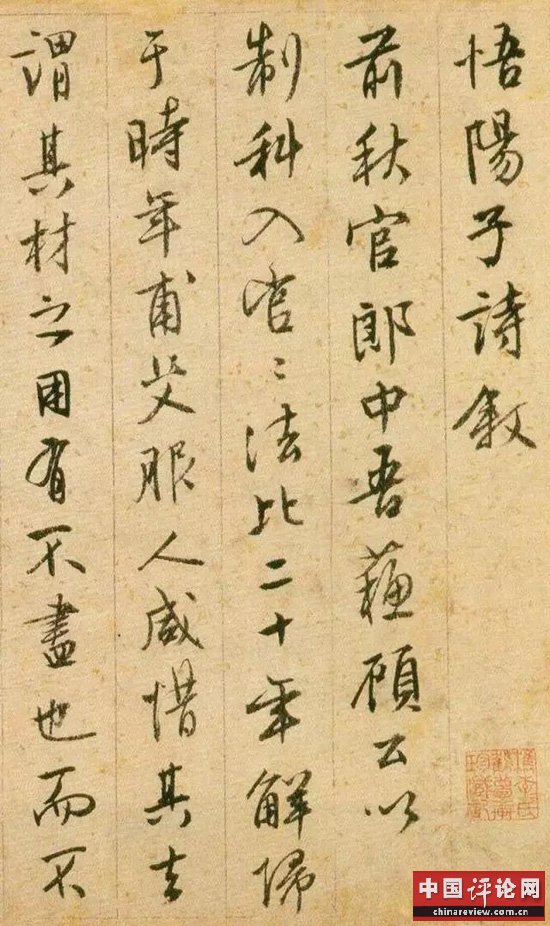 悟陽子詩敘
前秋官郎中吾蘓顧公以
制科入官〻法比二十年解歸
于時年甫艾服人咸惜其去
謂其材之用有不盡也而不
中国评论网
chinareview.com
www.cn